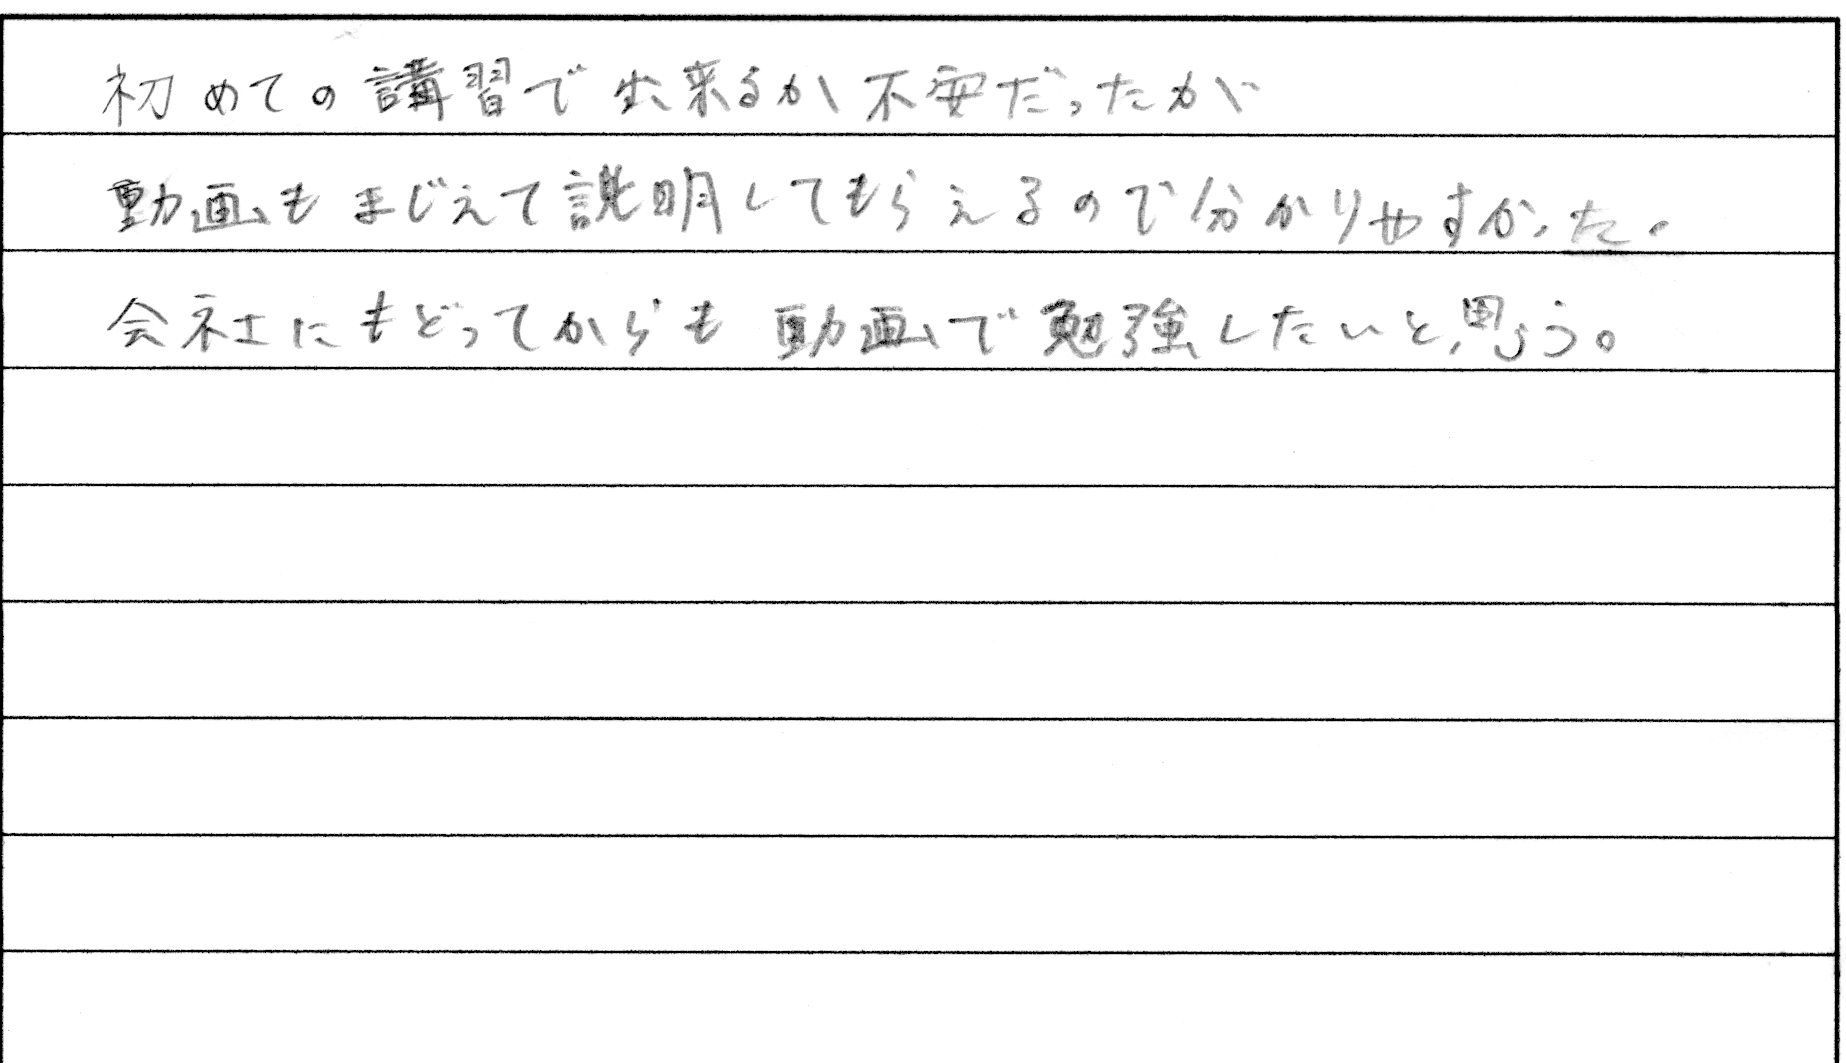 初めての講習で出来るか不安だったが
動画もまじえて説明してもらえるので分かりやすかった。
会社にもどってからも動画で勉強したいと思う。